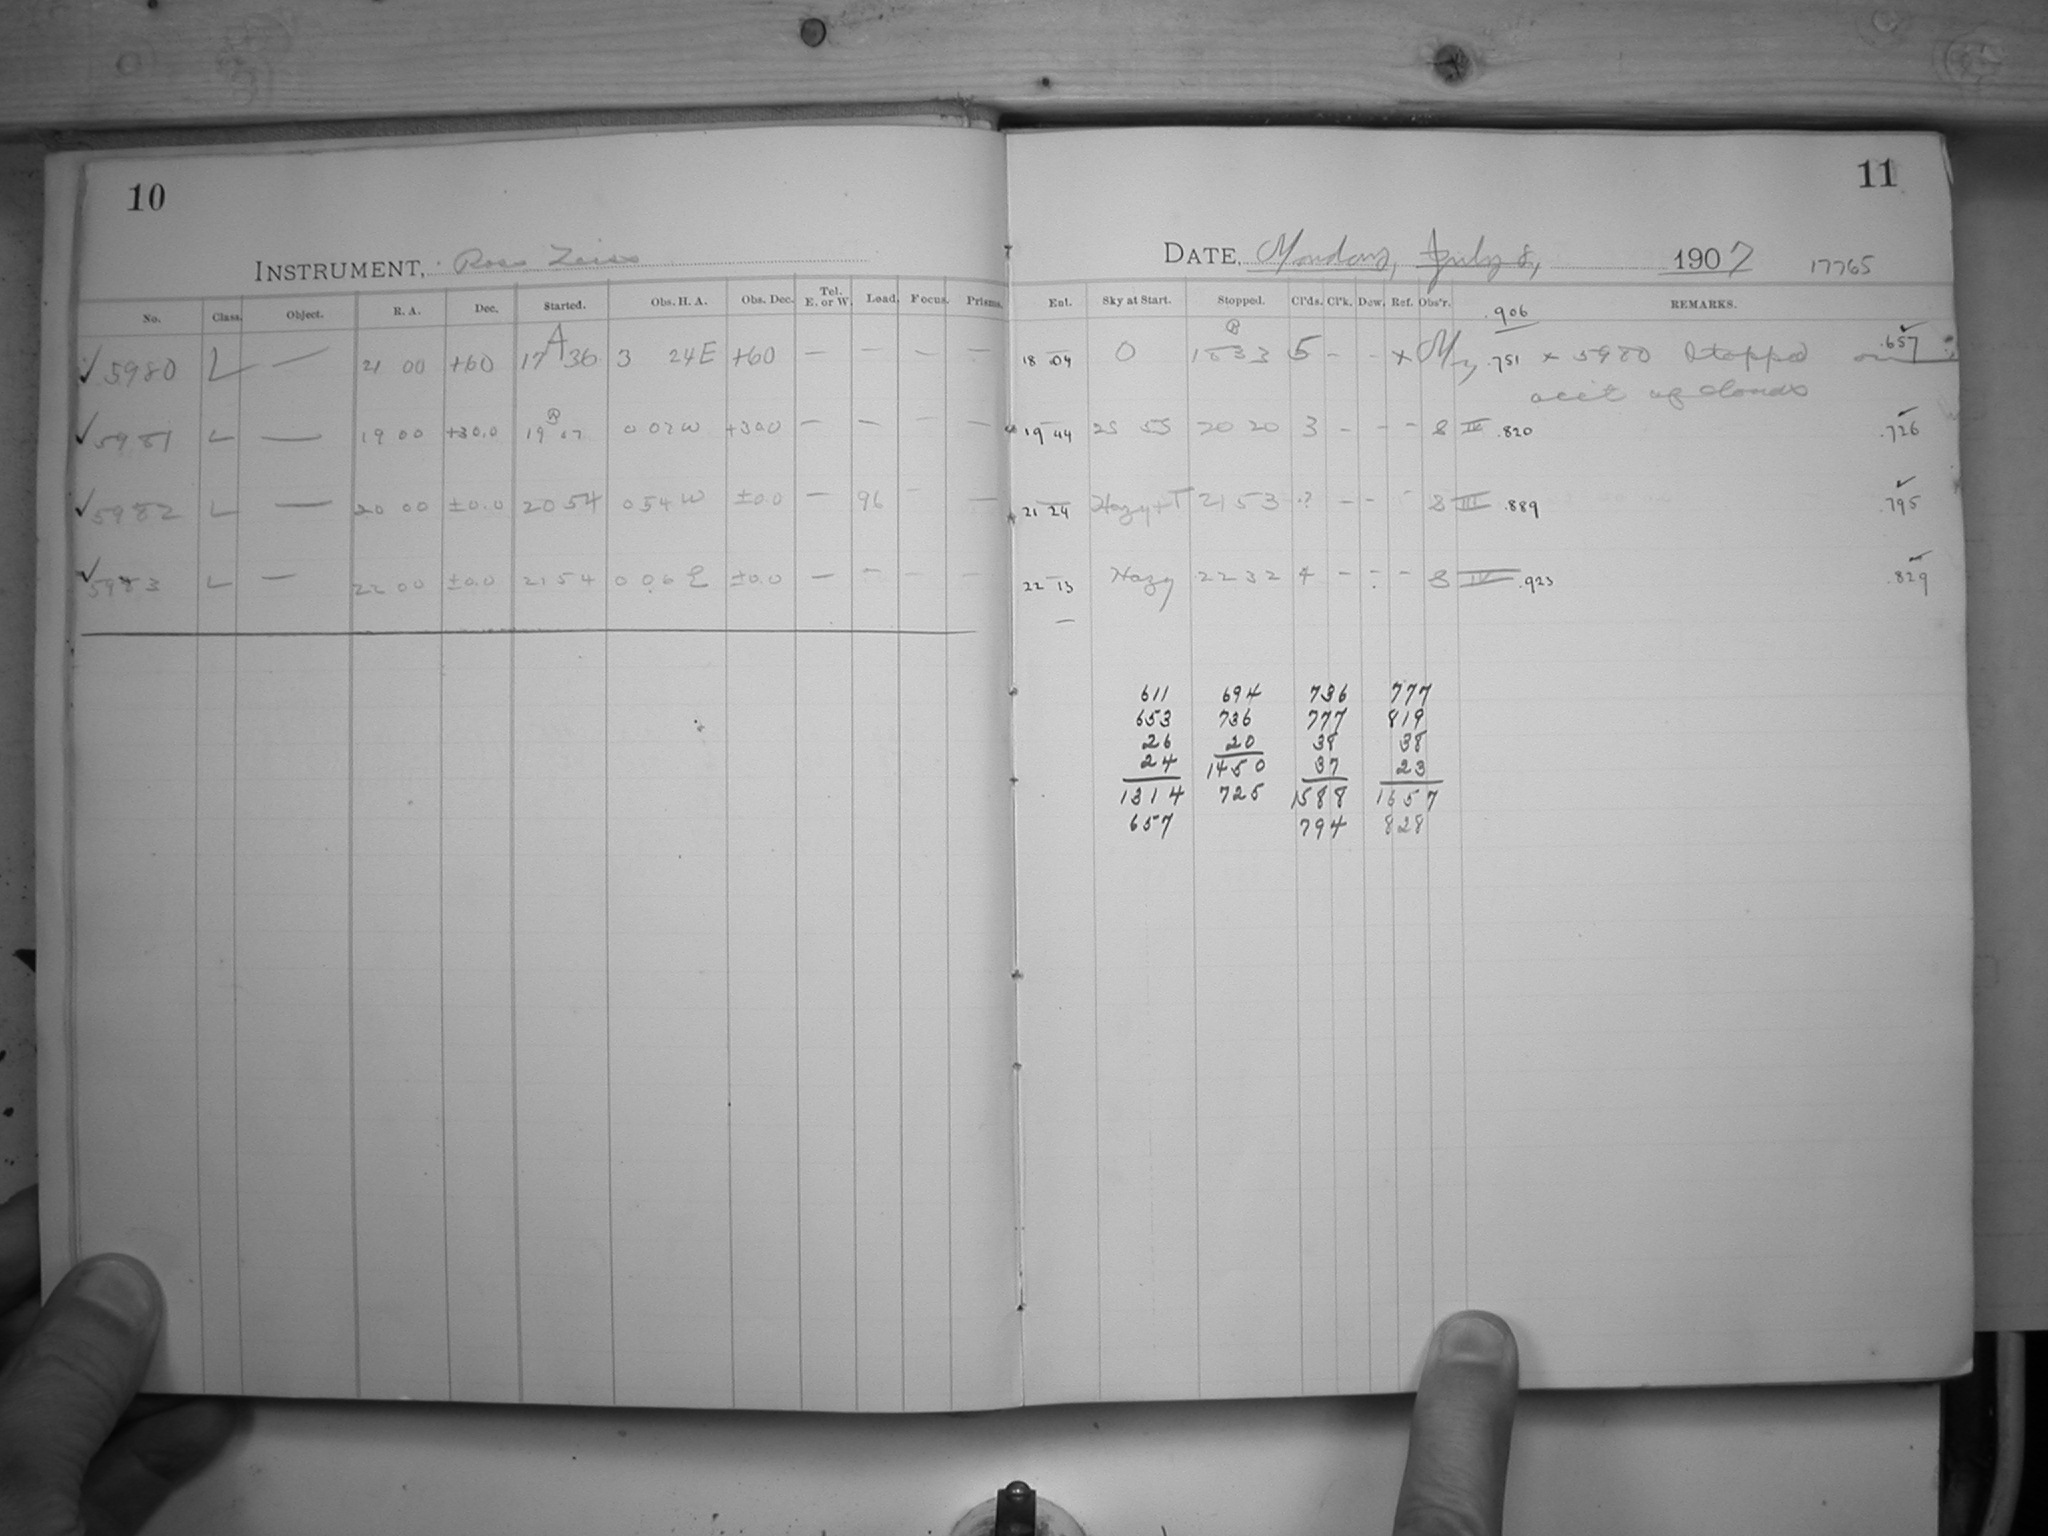 10
INSTRUMENT, Ross Zeiss
No. Class. Object. R. A. Dec. Started. Obs. H. A. Obs. Dec. Tel. E. or W. Load. Focus. Prisms.
✓ 5980 L — 21 00 +60 17 A 36 3 24 E +60 — — — —
✓ 5981 L — 19 00 +30.0 19 07 0 07 W +30.0 — — — —
✓ 5982 L — 20 00 ±0.0 20 54 0 54 W ±0.0 — 96 — —
✓ 5983 L — 22 00 ±0.0 21 54 0 06 E ±0.0 — — — —
11
DATE, Monday, July 8, 1907 17765
Ent. Sky at Start. Stopped. Cl'ds. Cl'k. Dew. Ref. Obs'r. REMARKS.
.906
18 04 0 18 33 5 - - × .751 × 5980 Stopped on .657
acct of clouds
19 44 2S 5S 20 20 3 - - - 8 II .820 .726
21 24 Hazy + T 21 53 ? - - - 8 III .889 .795
22 13 Hazy 22 32 4 - - - 8 IV .923 .829
611 694 736 777
653 736 777 819
26 20 38 38
24 1450 37 23
1314 725 1588 1657
657 794 828